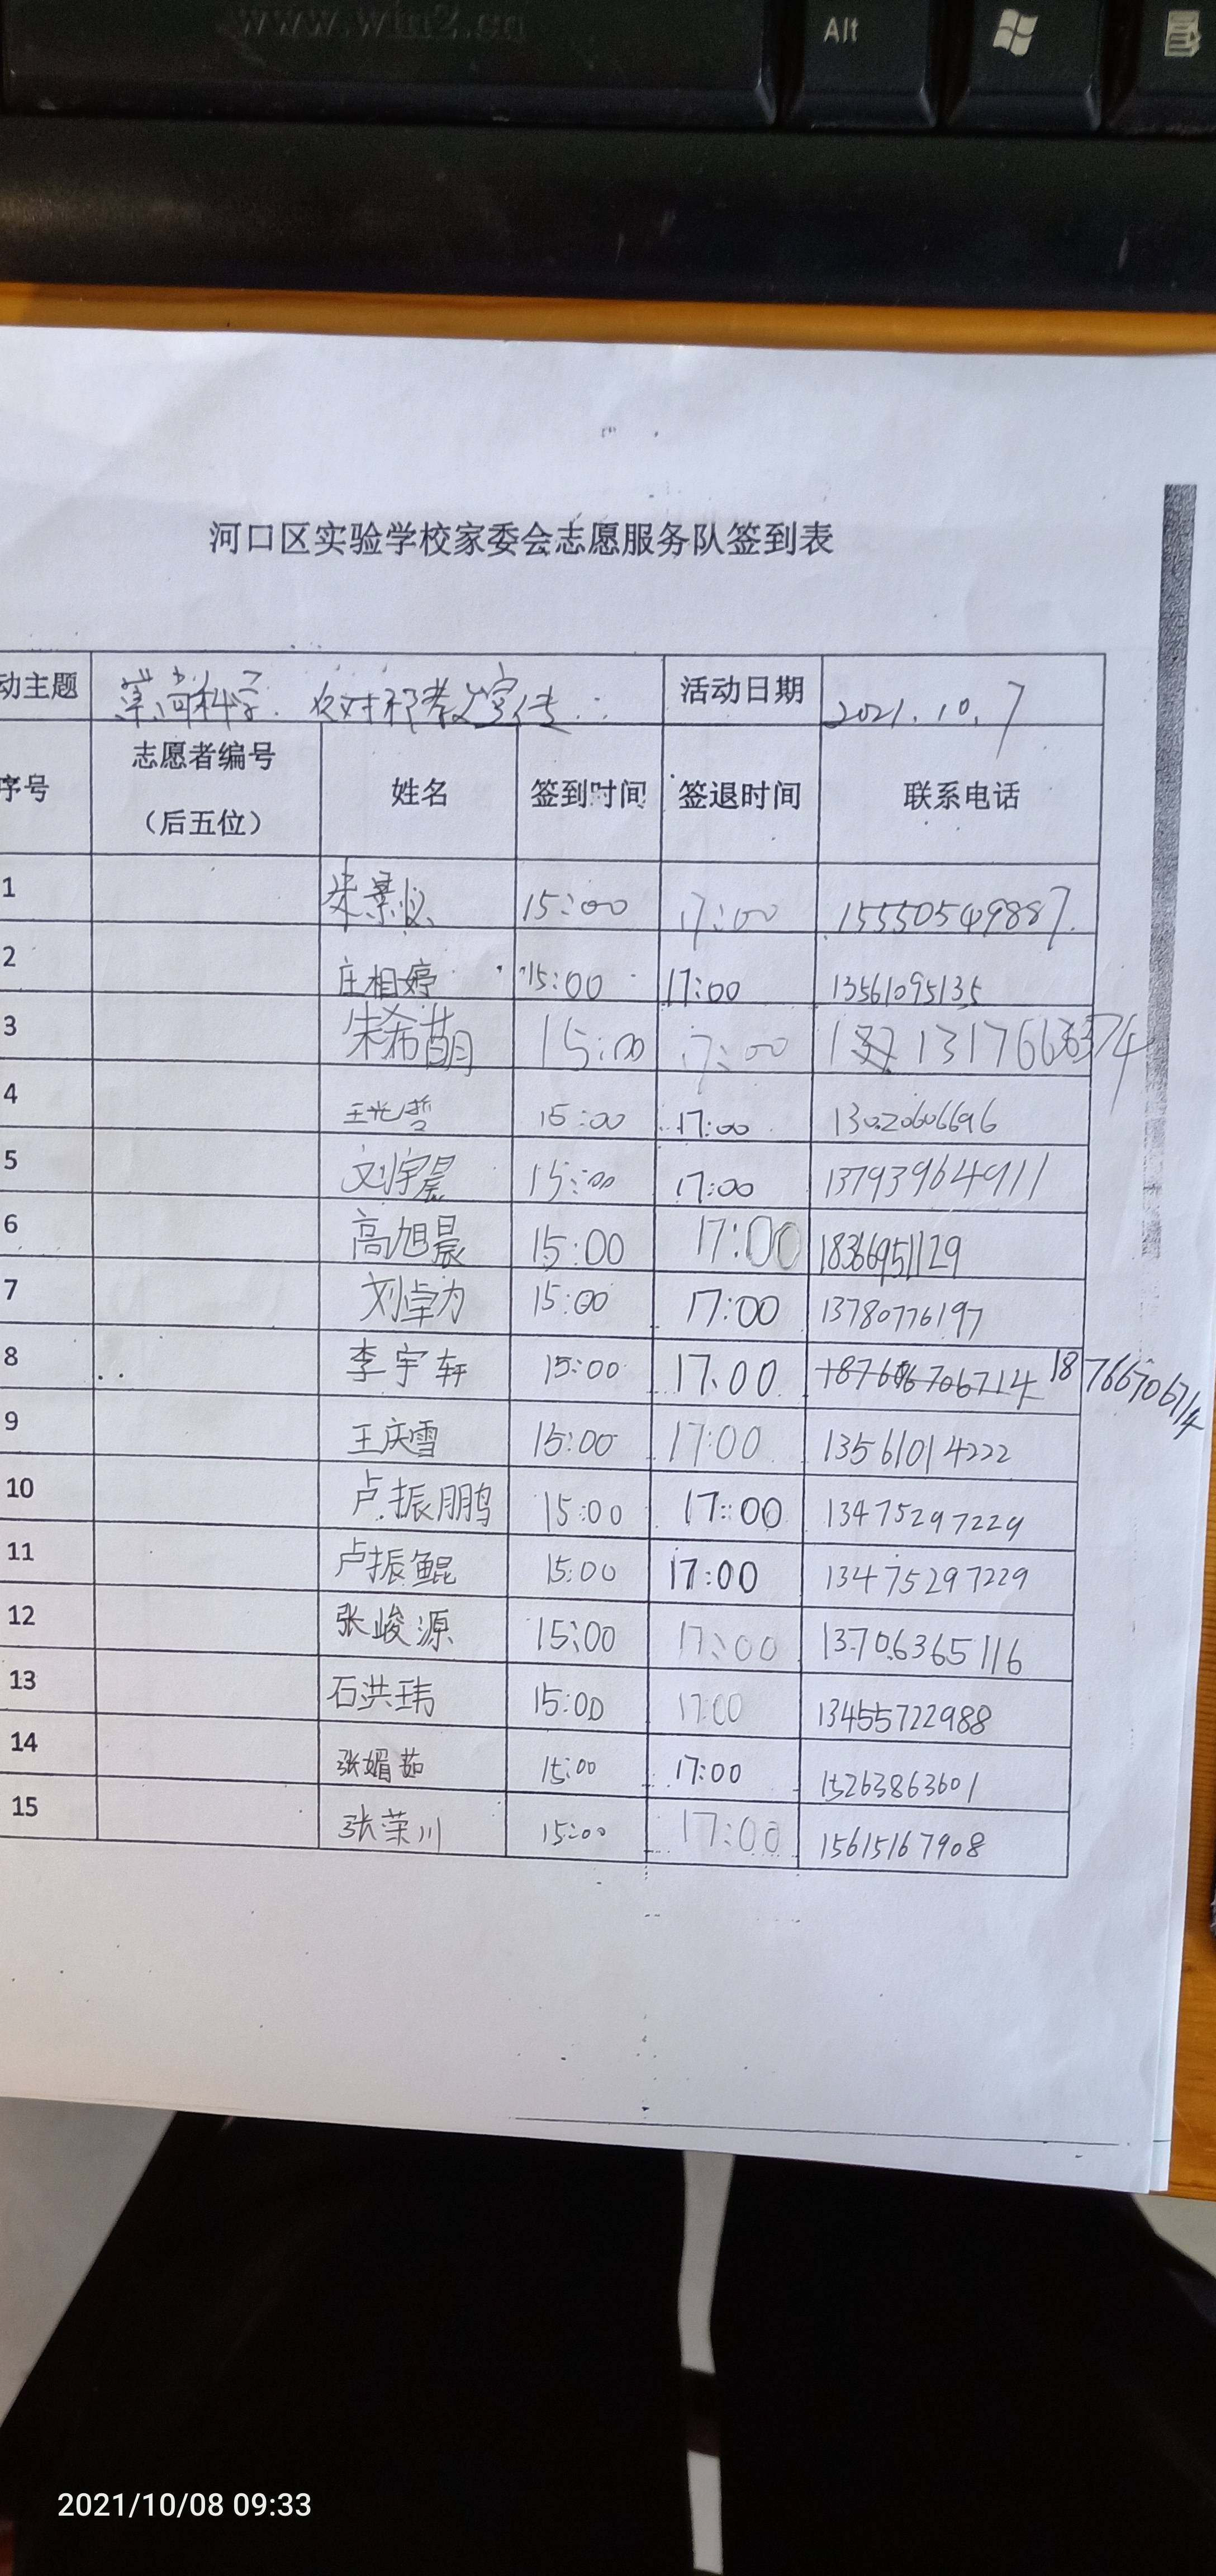 www.win2.cn
Alt
河口区实验学校家委会志愿服务队签到表
动主题 崇尚科学. 反对邪教宣传 活动日期 2021.10.7
序号 志愿者编号（后五位） 姓名 签到时间 签退时间 联系电话
1 15:00 17:00 15550549887
2 庄相婷 15:00 17:00 13561095135
3 朱希萌 15:00 17:00
4 王光哲 15:00 17:00 13020606696
5 刘宇晨 15:00 17:00 13793964911
6 高旭晨 15:00 17:00 18366951129
7 刘卓为 15:00 17:00 13780776197
8 李宇轩 15:00 17:00 18766706714
9 王庆雪 15:00 17:00 13561014222
10 卢振鹏 15:00 17:00 13475297229
11 卢振鲲 15:00 17:00 13475297229
12 张峻源 15:00 17:00 13706365116
13 石洪玮 15:00 17:00 13455722988
14 张媚茹 15:00 17:00 15263863601
15 张荣川 15:00 17:00 15615167908
2021/10/08 09:33